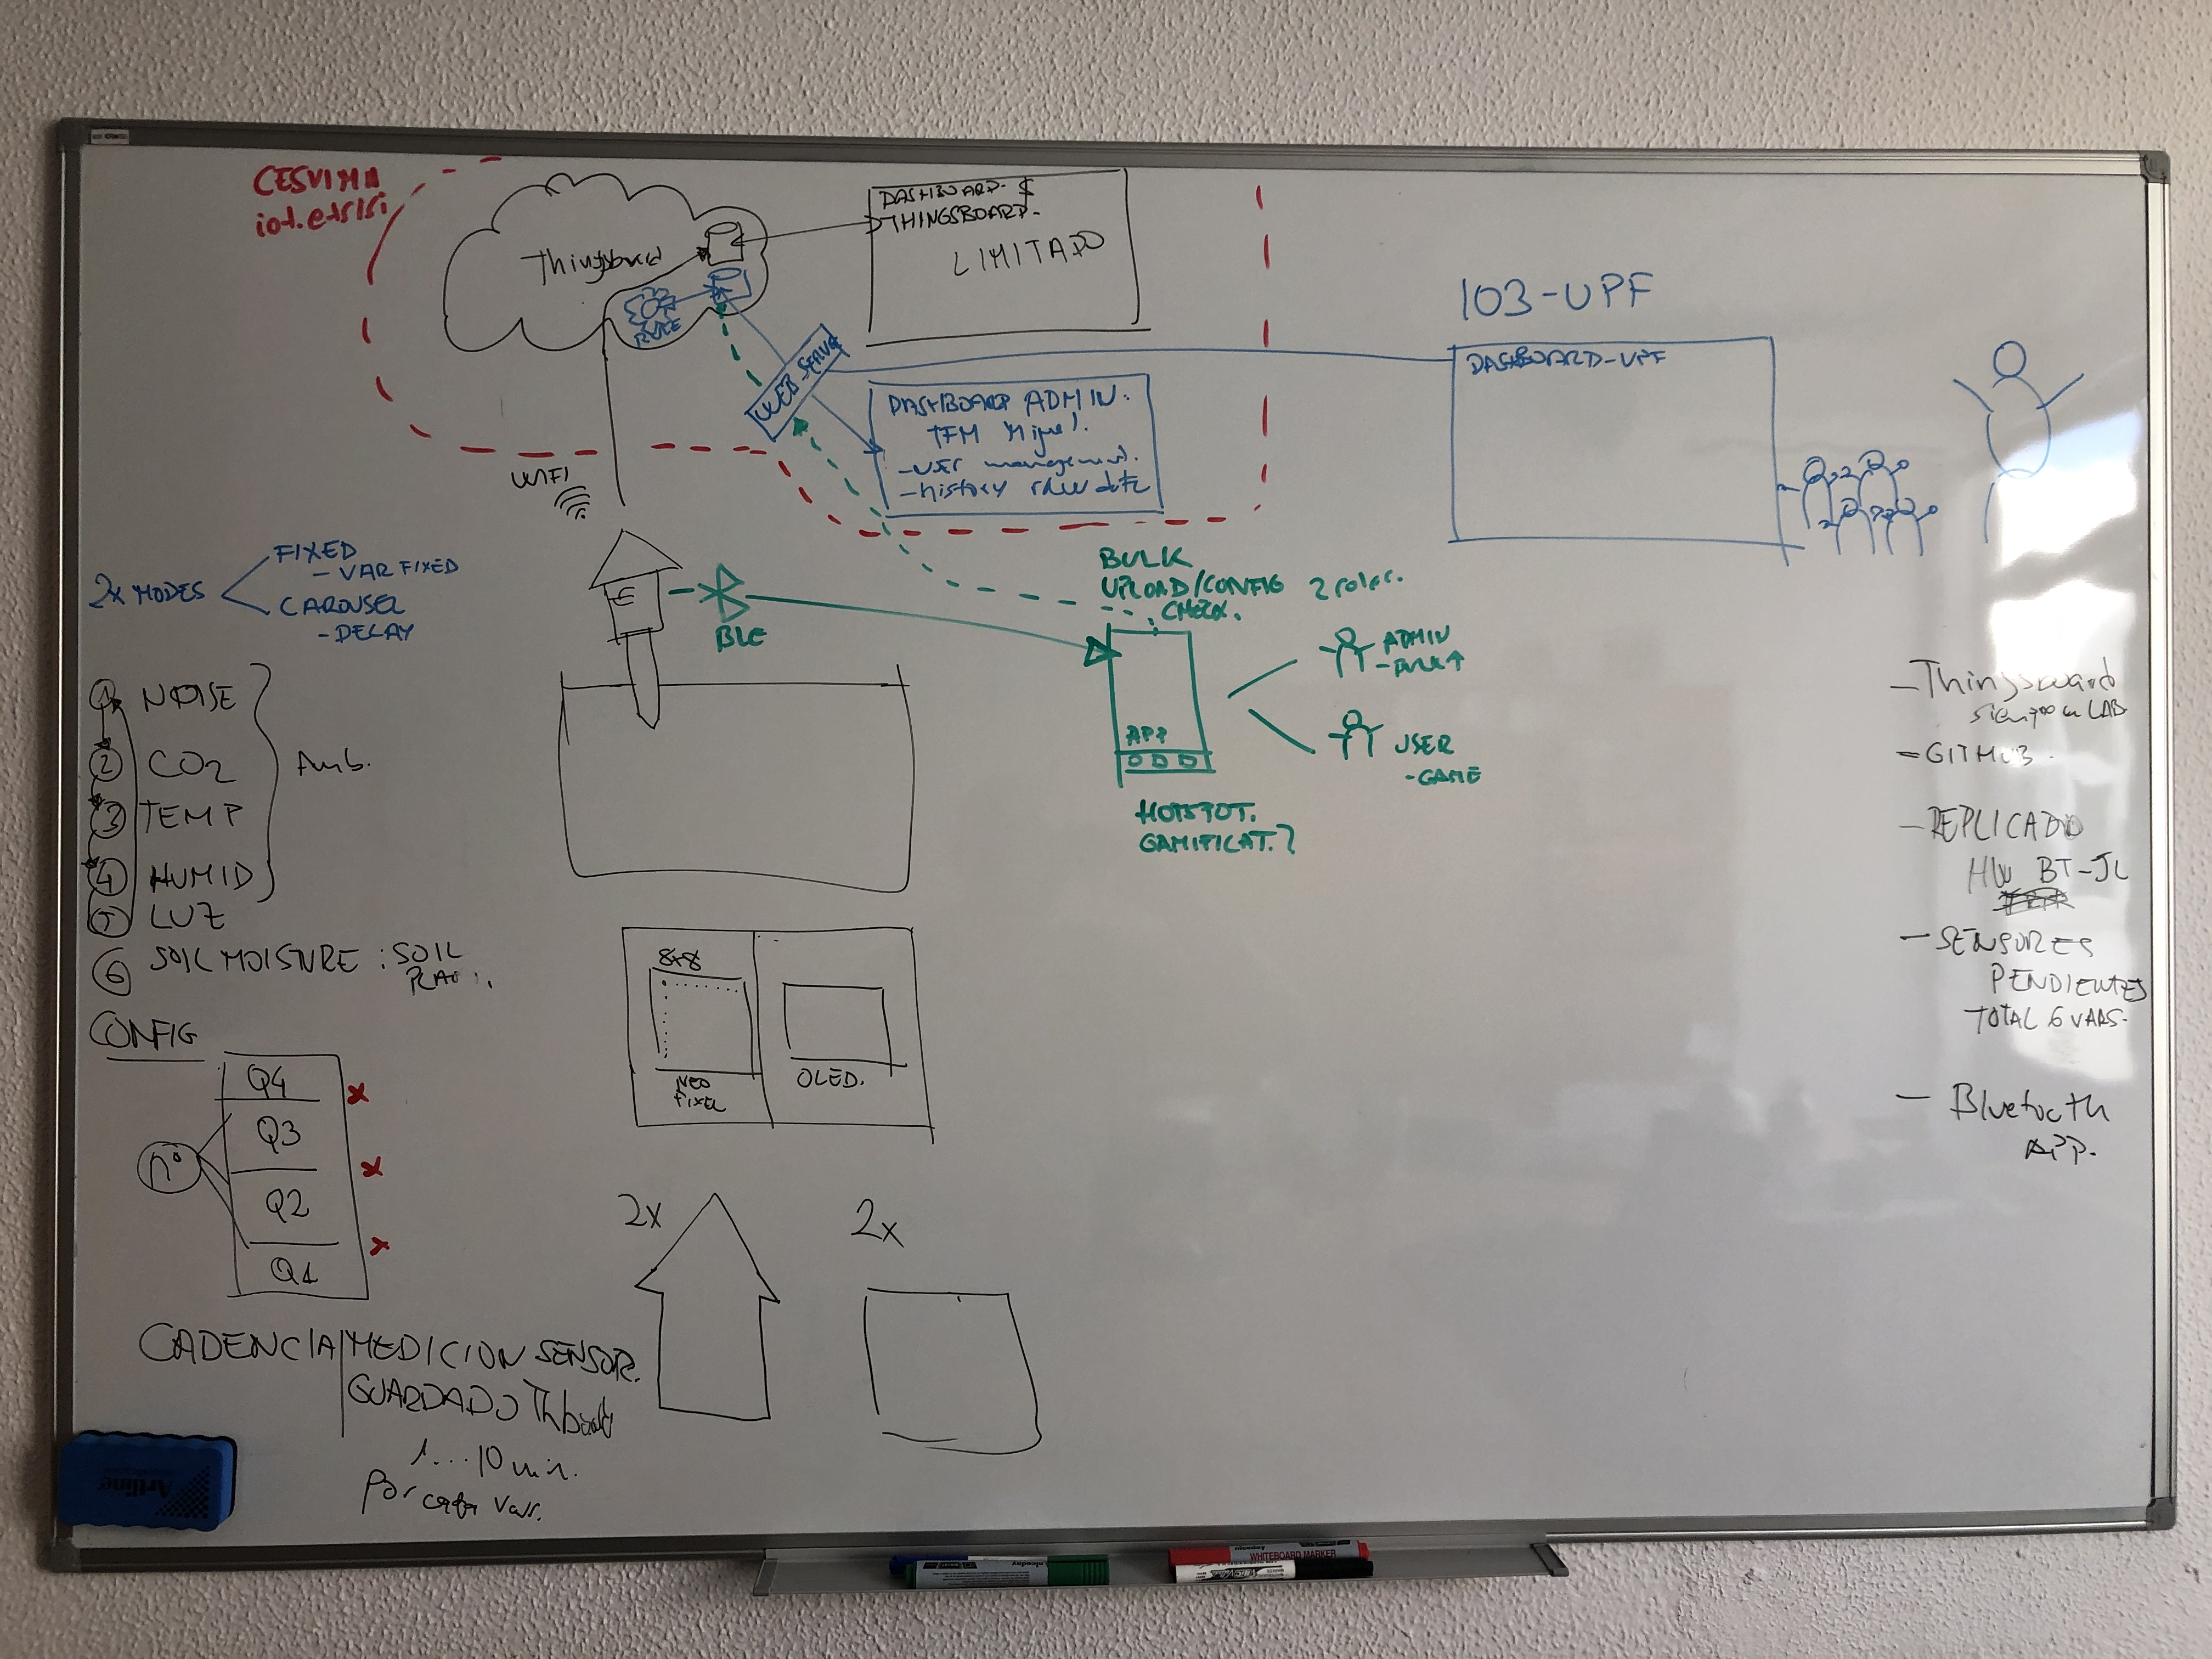 CESVIMA
iot.etsisi
Thingsboard
RULE
DASHBOARD-$
THINGSBOARD-
LIMITADO
WEB SERV
DASHBOARD ADMIN.
TFM Miguel.
-USER management.
-history raw data
103-UPF
DASHBOARD-UPF
WIFI
2x MODES
FIXED
- VAR FIXED
CAROUSEL
- DELAY
BLE
BULK
UPLOAD/CONFIG
CHECK.
2 roles.
ADMIN
-BULK↑
APP
USER
-GAME
HOTSPOT.
GAMIFICAT.?
1 NOISE
2 CO2
3 TEMP
4 HUMID
Amb.
5 LUZ
6 SOIL MOISTURE : SOIL
CONFIG
Q4
Q3
Q2
Q1
nº
8x8
NEO
PIXEL
OLED.
2x
2x
CADENCIA MEDICION SENSOR.
GUARDADO
1...10 min.
por cada var.
-Thingsboard
siempre en LAB
-GITHUB.
-REPLICADO
HW BT-JL
- SENSORES
PENDIENTES
TOTAL 6 VARS.
- Bluetooth
APP.
Artline
WHITEBOARD MARKER